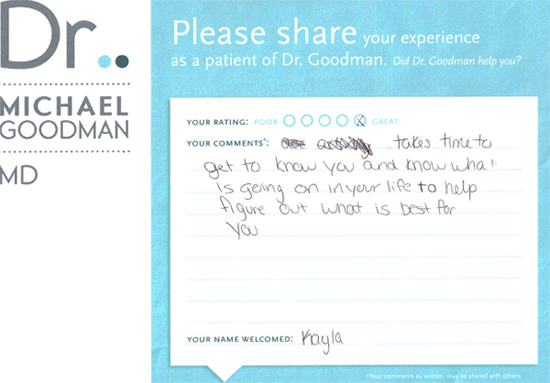 Dr..
MICHAEL
GOODMAN
MD
Please share your experience
as a patient of Dr. Goodman. Did Dr. Goodman help you?
YOUR RATING: POOR GREAT
YOUR COMMENTS*: takes time to
get to know you and know what
is going on in your life to help
figure out what is best for
you
YOUR NAME WELCOMED: Kayla
*Your comments as written, may be shared with others.